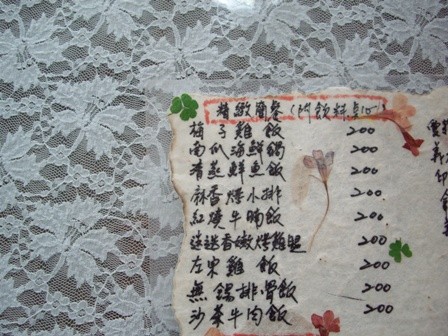 精緻簡餐(附飲料點心)
柚子雞飯 200
南瓜海鮮鍋 200
清蒸鮮魚飯 200
麻香煙小排 200
紅燒牛腩飯 200
迷迭香嫩煙雞腿 200
左宗雞飯 200
無錫排骨飯 200
沙茶牛肉飯 200